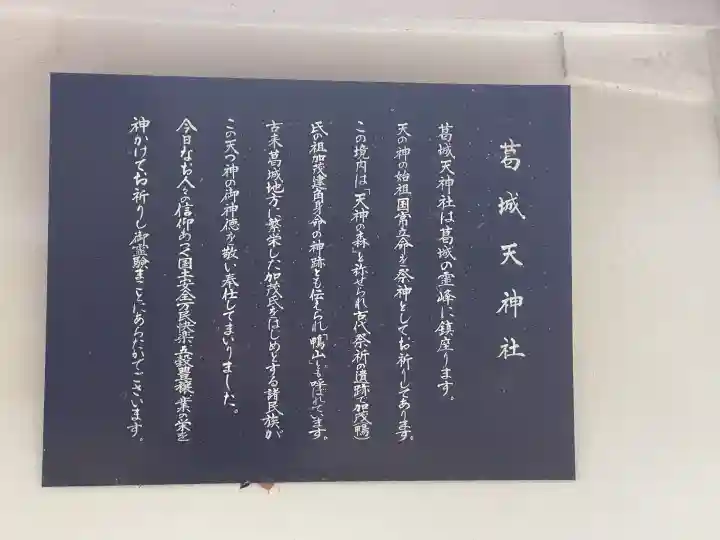 葛城天神社
葛城天神社は葛城の霊峰に鎮座ります。
天の神の始祖国常立命を祭神としてお祈りしてあります。
この境内は「天神の森」と称せられ古代祭祈の遺跡で加茂(鴨)
氏の祖加茂建角身命の神跡とも伝えられ「鴨山」とも呼ばれています。
古来葛城地方に繁栄した加茂氏をはじめとする諸民族が
この天つ神の御神徳を敬い奉仕してまいりました。
今日なお人々の信仰あつく国土安全万民快楽五穀豊穣、業の栄を
神かけてお祈りし御霊験まことにあらたかでございます。